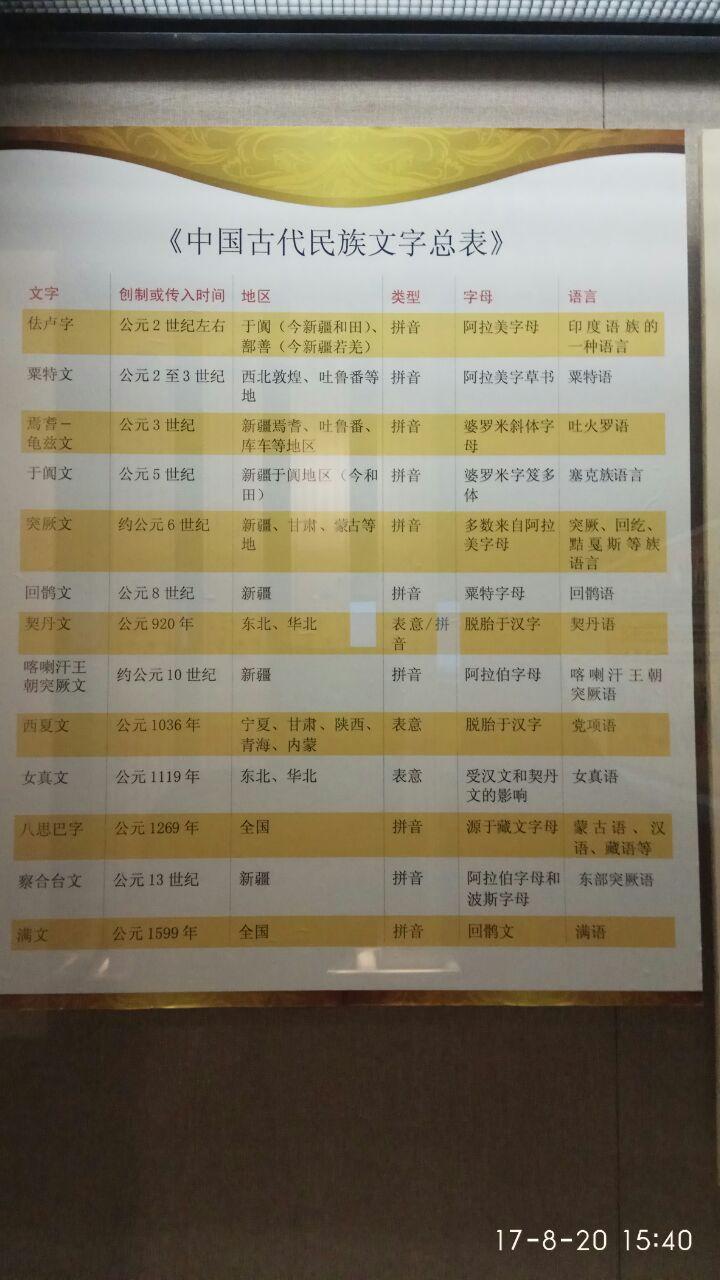 《中国古代民族文字总表》
文字 创制或传入时间 地区 类型 字母 语言
佉卢字 公元2世纪左右 于阗（今新疆和田）、鄯善（今新疆若羌） 拼音 阿拉美字母 印度语族的一种语言
粟特文 公元2至3世纪 西北敦煌、吐鲁番等地 拼音 阿拉美字草书 粟特语
焉耆－龟兹文 公元3世纪 新疆焉耆、吐鲁番、库车等地区 拼音 婆罗米斜体字母 吐火罗语
于阗文 公元5世纪 新疆于阗地区（今和田） 拼音 婆罗米字笈多体 塞克族语言
突厥文 约公元6世纪 新疆、甘肃、蒙古等地 拼音 多数来自阿拉美字母 突厥、回纥、黠戛斯等族语言
回鹘文 公元8世纪 新疆 拼音 粟特字母 回鹘语
契丹文 公元920年 东北、华北 表意/拼音 脱胎于汉字 契丹语
喀喇汗王朝突厥文 约公元10世纪 新疆 拼音 阿拉伯字母 喀喇汗王朝突厥语
西夏文 公元1036年 宁夏、甘肃、陕西、青海、内蒙 表意 脱胎于汉字 党项语
女真文 公元1119年 东北、华北 表意 受汉文和契丹文的影响 女真语
八思巴字 公元1269年 全国 拼音 源于藏文字母 蒙古语、汉语、藏语等
察合台文 公元13世纪 新疆 拼音 阿拉伯字母和波斯字母 东部突厥语
满文 公元1599年 全国 拼音 回鹘文 满语
17-8-20 15:40